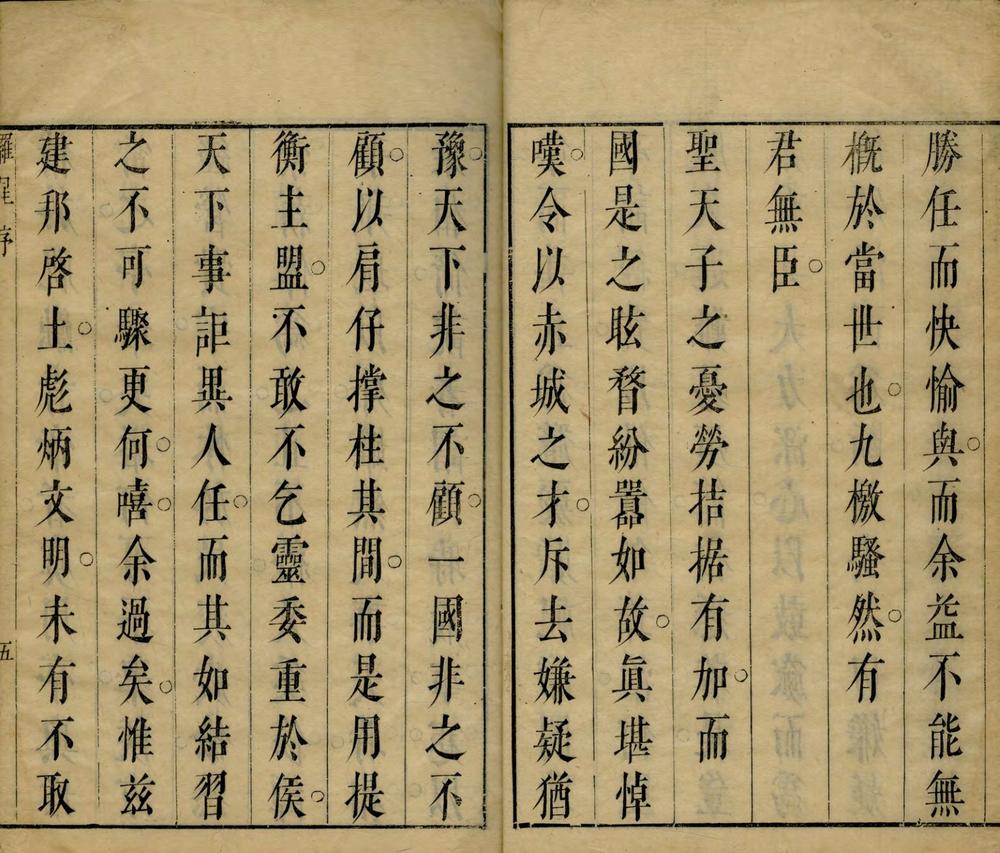 勝任而快愉與而余益不能無
概於當世也九檄騷然有
君無臣
聖天子之憂勞拮据有加而
國是之眩瞀紛囂如故真堪悼
嘆令以赤城之才斥去嫌疑猶
豫天下非之不顧一國非之不
顧以肩仔撑柱其間而是用提
衡主盟不敢不乞靈委重於侯
天下事詎異人任而其如結習
之不可驟更何嘻余過矣惟茲
建邦啓土彪炳文明未有不取
羅 序 五